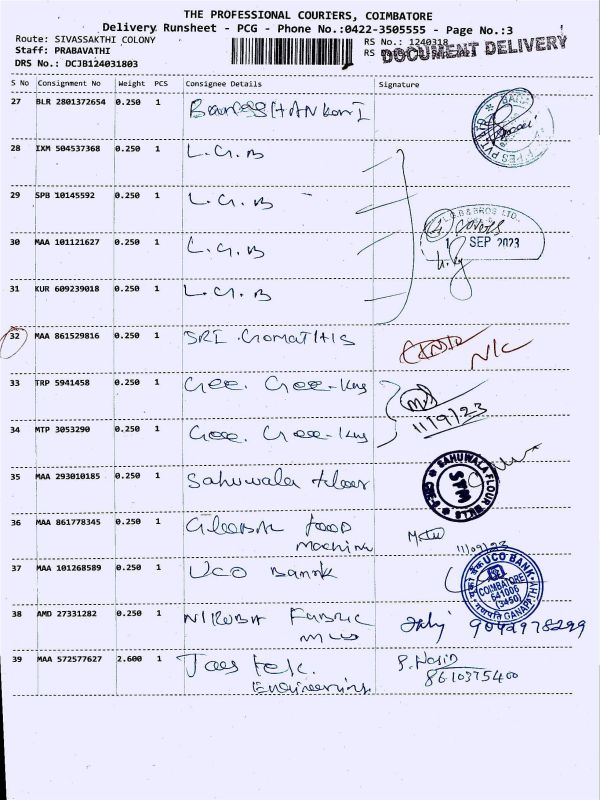 THE PROFESSIONAL COURIERS, COIMBATORE
Delivery Runsheet - PCG - Phone No.:0422-3505555 - Page No.:3
Route: SIVASSAKTHI COLONY
Staff: PRABAVATHI
DRS No.: DCJB124031803
RS No.: 1240318
DOCUMENT DELIVERY
S No Consignment No Weight PCS Consignee Details Signature
27 BLR 2801372654 0.250 1
28 IXM 504537368 0.250 1 L.G.B
29 SPB 10145592 0.250 1 L.G.B
30 MAA 101121627 0.250 1 L.G.B
31 KUR 609239018 0.250 1 L.G.B
L.G.B & BROS LTD.,
4 covers
1 SEP 2023
32 MAA 861529816 0.250 1 SRI GOMATHIS
N/C
33 TRP 5941458 0.250 1 Gee. Gee-Kay
34 MTP 3053290 0.250 1 Gee. Gee-Kay
11/9/23
35 MAA 293010185 0.250 1 Sahuwala flour
SAHUWALA FLOUR MILLS
SPM
36 MAA 861778345 0.250 1 Global Food
Machine
11/09/23
37 MAA 101268589 0.250 1 UCO Bannk
UCO BANK
COIMBATORE
641006
GANAPATHY
38 AMD 27331282 0.250 1 NIRUBA FABRIC
mills
9042978299
39 MAA 572577627 2.600 1 Jaes tek.
Engineering
P. Nasin
8610375400